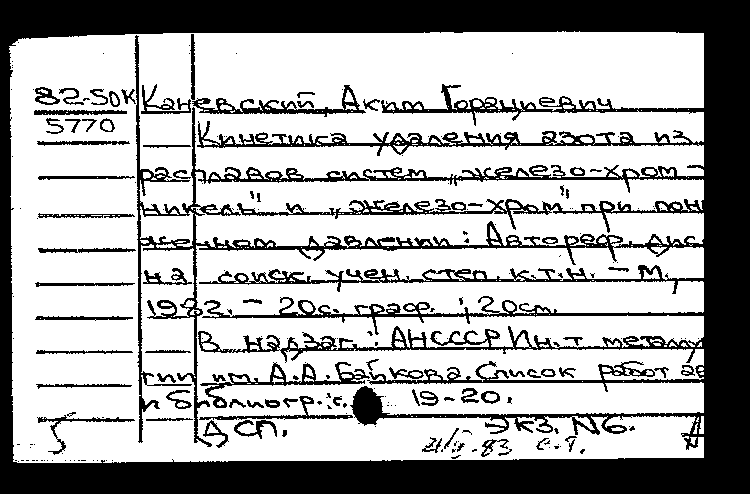 82-50К Каневский, Аким Горациевич.
5770
Кинетика удаления азота из
расплавов систем „железо-хром-
никель" и „железо-хром" при пони
женном давлении: Автореф. дис.
на соиск. учен. степ. к.т.н. - М.,
1982. - 20с., граф. ; 20см.
В надзаг.: АНСССР, Ин-т металлу
гии им. А.А. Байкова. Список работ ав
и библиогр.: с. 19-20.
ДСП. Экз. №6.
83